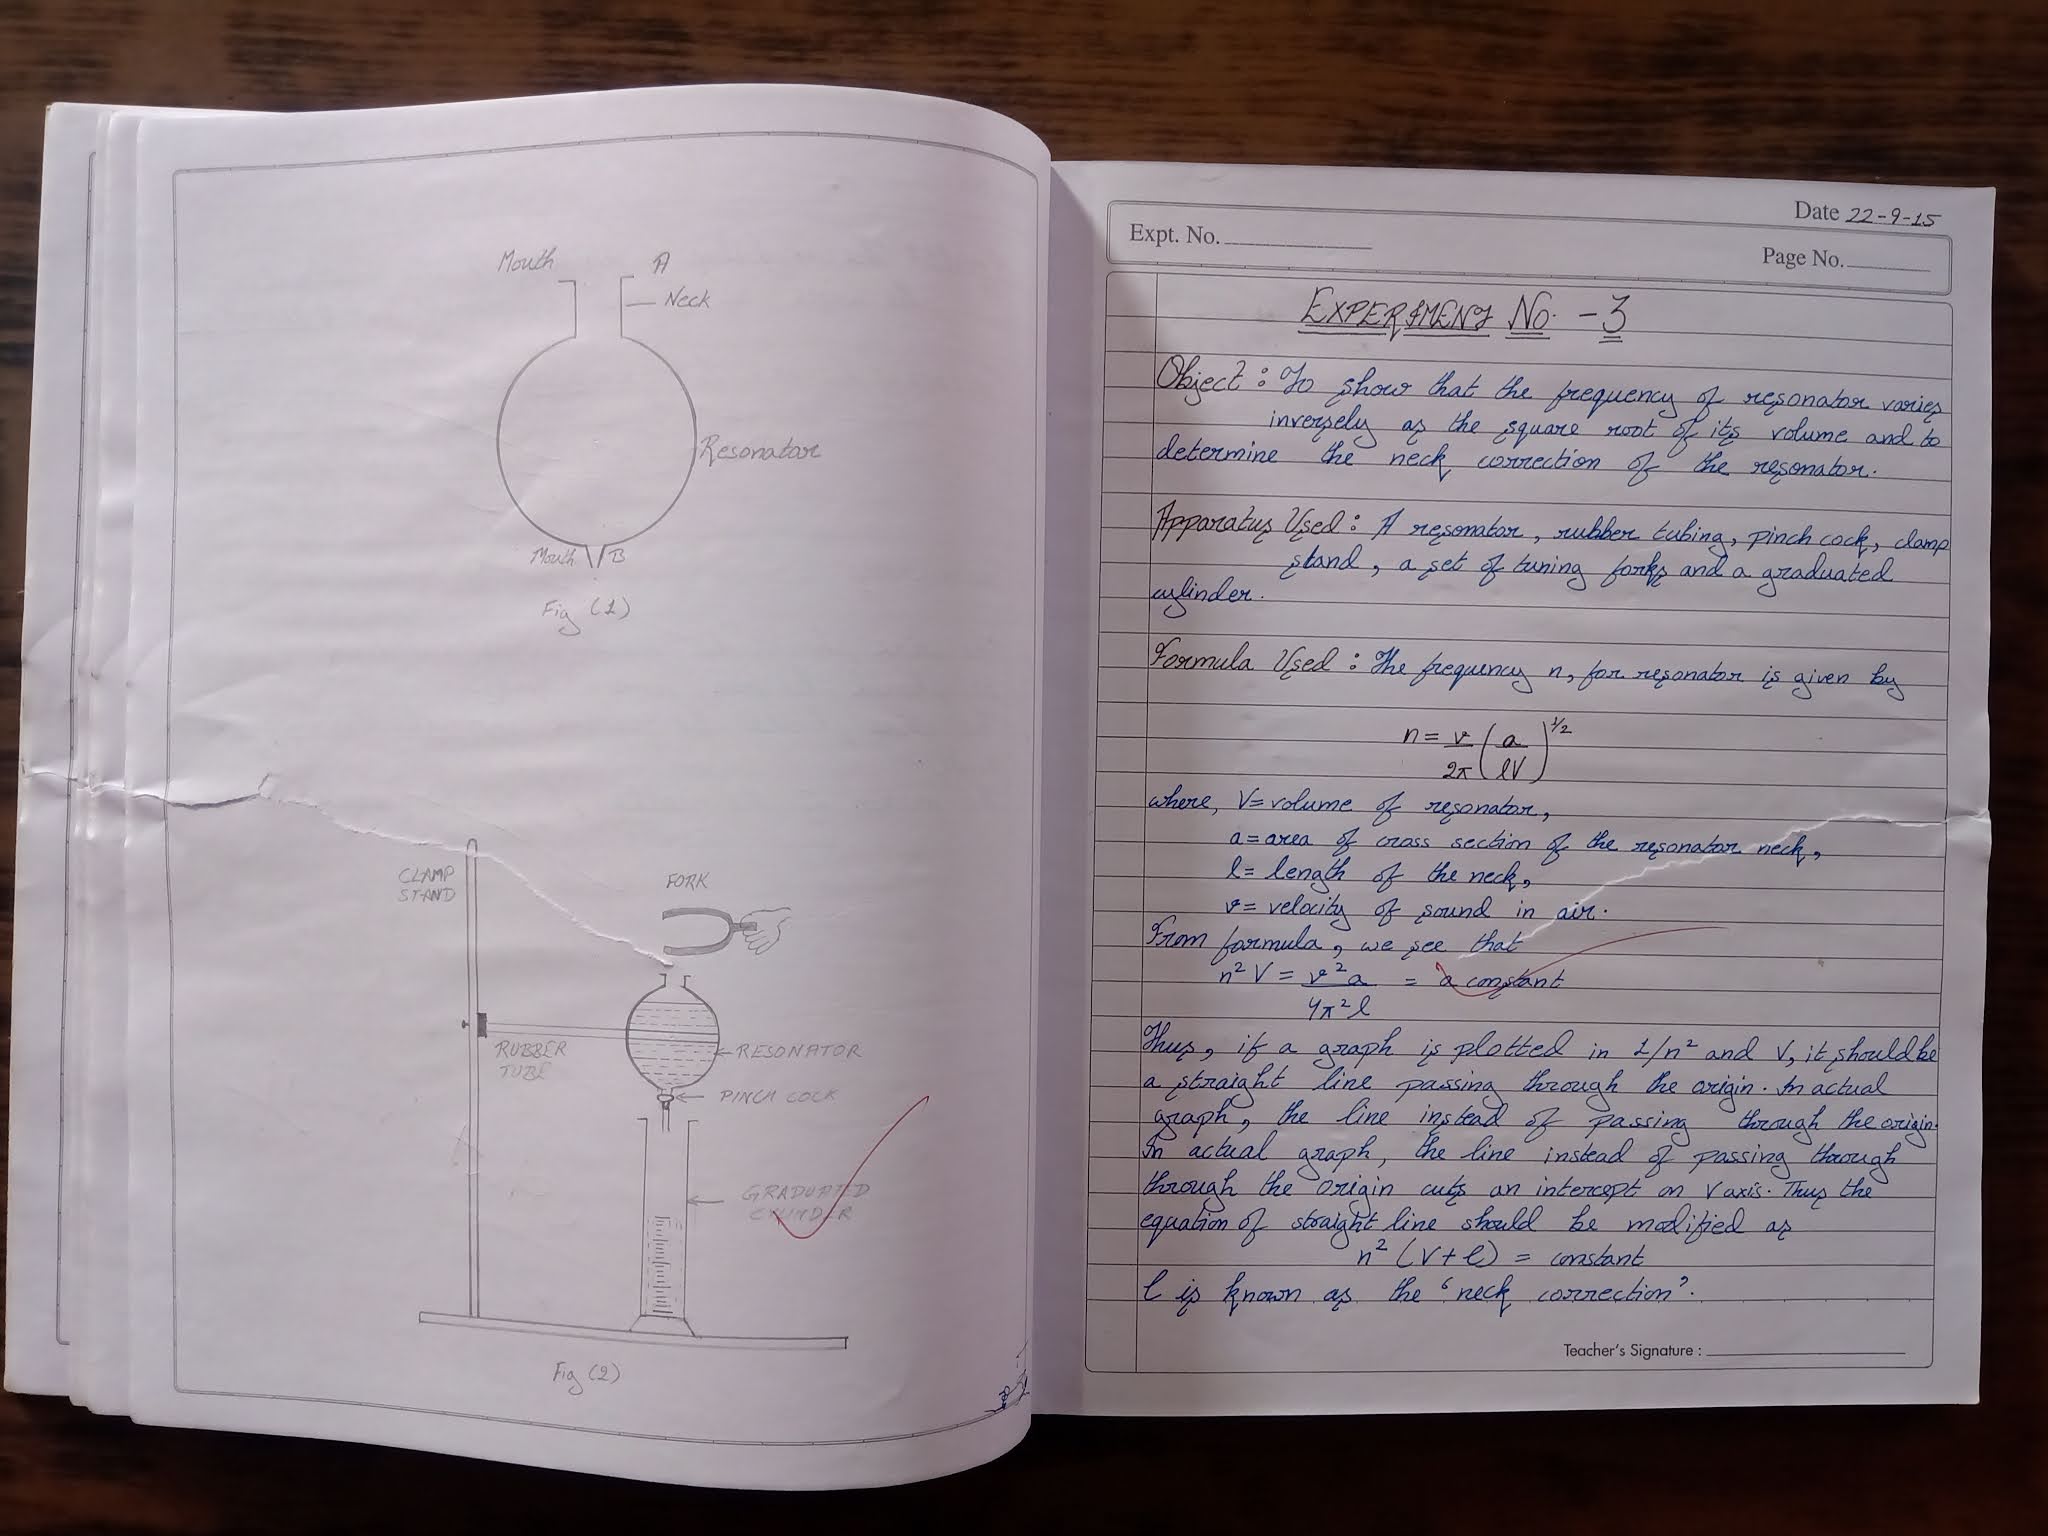 Mouth
A
Neck
Resonator
Mouth
B
Fig (1)
CLAMP
STAND
FORK
RUBBER
TUBE
RESONATOR
PINCH COCK
GRADUATED
CYLINDER
Fig (2)
Date 22-9-15
Expt. No.
Page No.
EXPERIMENT No. - 3
Object : To show that the frequency of resonator varies
inversely as the square root of its volume and to
determine the neck correction of the resonator.
Apparatus Used : A resonator, rubber tubing, pinch cock, clamp
stand, a set of tuning forks and a graduated
cylinder.
Formula Used : The frequency n, for resonator is given by
n = v/2π (a/lV)^1/2
where, V = volume of resonator,
a = area of cross section of the resonator neck,
l = length of the neck,
v = velocity of sound in air.
From formula, we see that
n²V = v²a/4π²l = a constant
Thus, if a graph is plotted in 1/n² and V, it should be
a straight line passing through the origin. In actual
graph, the line instead of passing through the origin.
In actual graph, the line instead of passing through
through the origin cuts an intercept on V axis. Thus the
equation of straight line should be modified as
n² (V + l) = constant
l is known as the 'neck correction'.
Teacher's Signature :